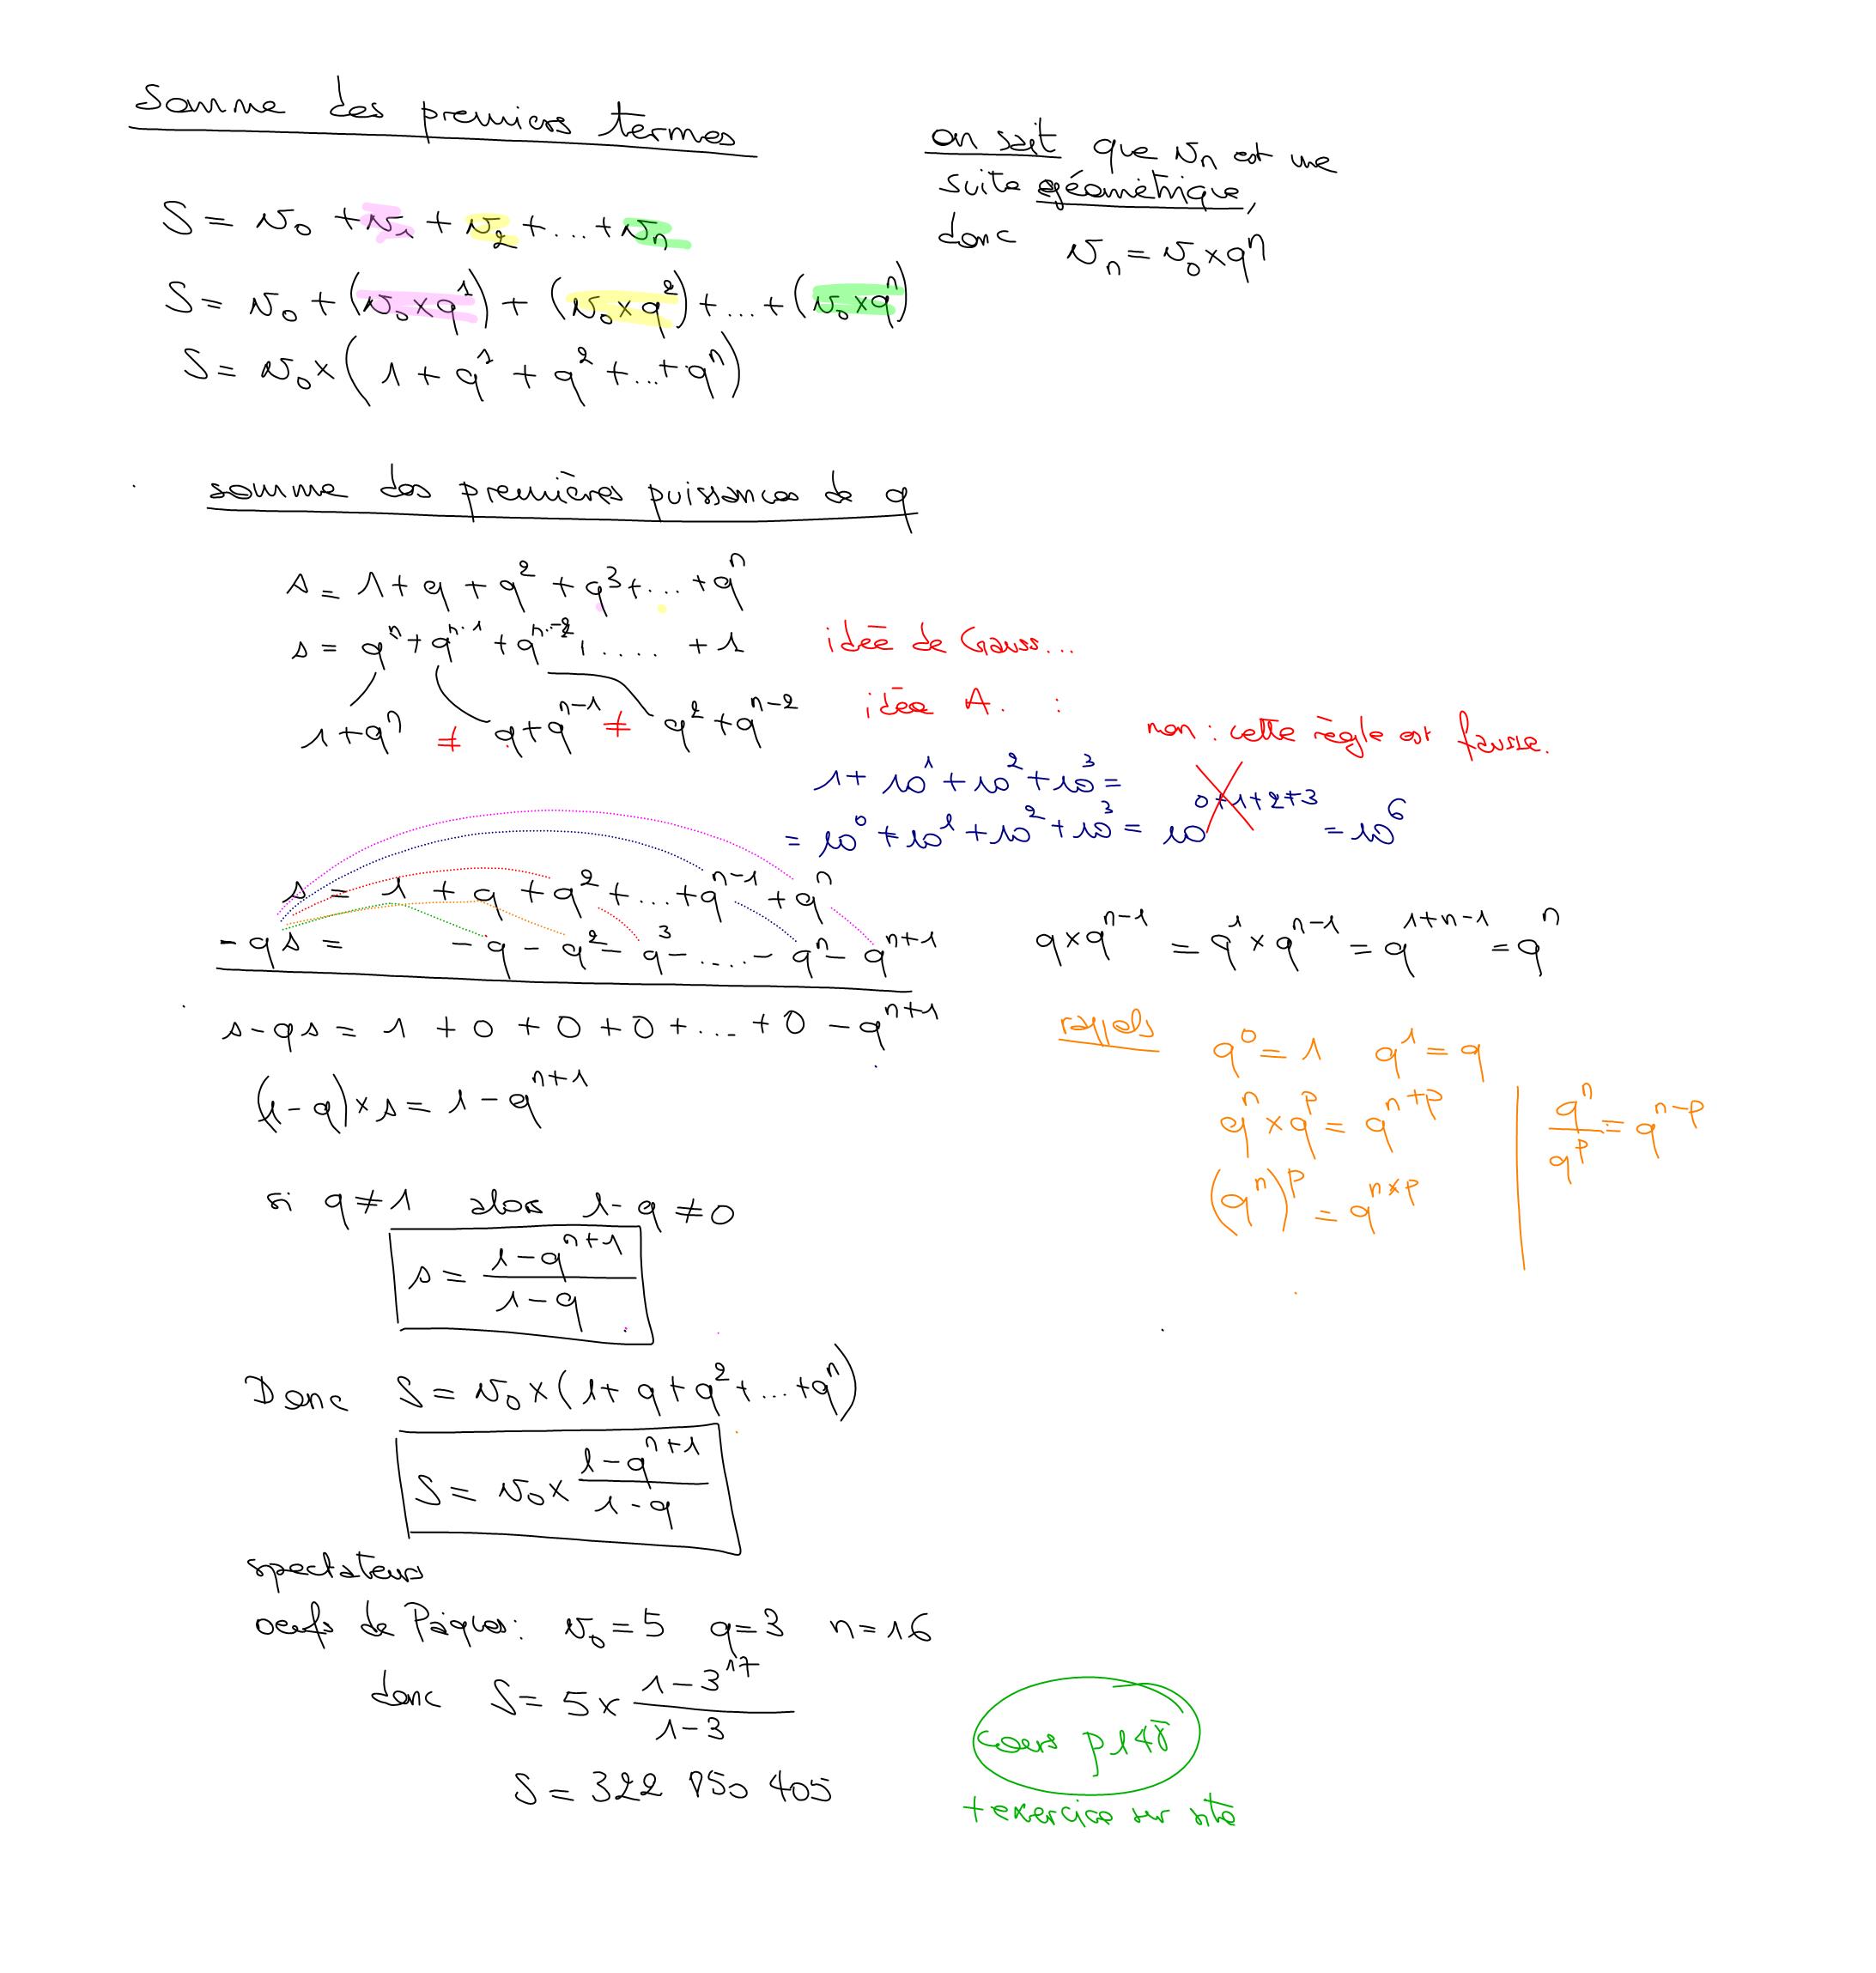 Somme des premiers termes
on sait que vₙ est une
suite géométrique,
donc vₙ = v₀ × qⁿ
S = v₀ + v₁ + v₂ + ... + vₙ
S = v₀ + (v₀ × q¹) + (v₀ × q²) + ... + (v₀ × qⁿ)
S = v₀ × (1 + q¹ + q² + ... + qⁿ)
somme des premières puissances de q
s = 1 + q + q² + q³ + ... + qⁿ
s = qⁿ + qⁿ⁻¹ + qⁿ⁻² + .... + 1
idée de Gauss...
1 + qⁿ ≠ q + qⁿ⁻¹ ≠ q² + qⁿ⁻²
idée A. :
non : cette règle est fausse.
1 + 10¹ + 10² + 10³ =
= 10⁰ + 10¹ + 10² + 10³ = 10⁰⁺¹⁺²⁺³ = 10⁶
s = 1 + q + q² + ... + qⁿ⁻¹ + qⁿ
- qs = - q - q² - q³ - .... - qⁿ - qⁿ⁺¹
s - qs = 1 + 0 + 0 + 0 + ... + 0 - qⁿ⁺¹
(1 - q) × s = 1 - qⁿ⁺¹
q × qⁿ⁻¹ = q¹ × qⁿ⁻¹ = q¹⁺ⁿ⁻¹ = qⁿ
rappels
q⁰ = 1 q¹ = q
qⁿ × qᵖ = qⁿ⁺ᵖ
qⁿ/qᵖ = qⁿ⁻ᵖ
(qⁿ)ᵖ = qⁿˣᵖ
si q ≠ 1 alors 1 - q ≠ 0
s = (1 - qⁿ⁺¹)/(1 - q)
Donc S = v₀ × (1 + q + q² + ... + qⁿ)
S = v₀ × (1 - qⁿ⁺¹)/(1 - q)
spectateurs
oeufs de Pâques : v₀ = 5 q = 3 n = 16
donc S = 5 × (1 - 3¹⁷)/(1 - 3)
S = 322 850 405
cours p148
+ exercice sur site